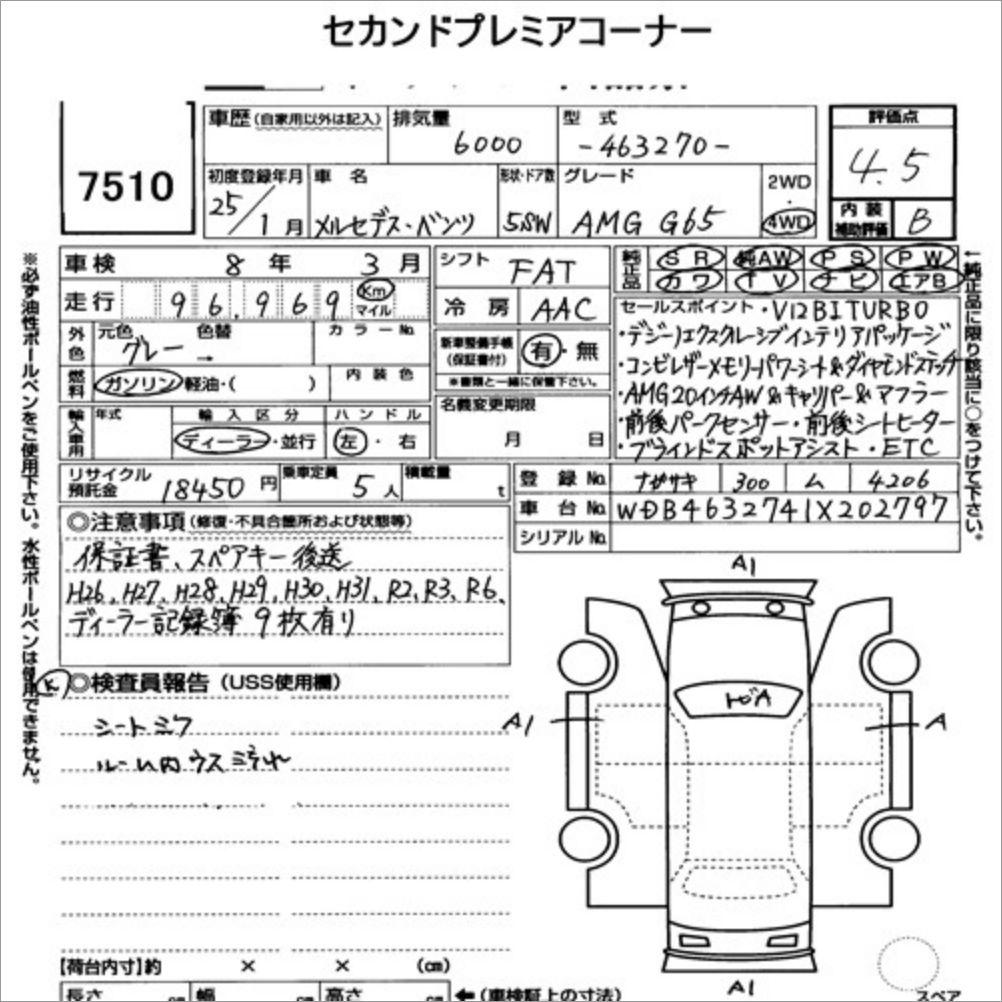 セカンドプレミアコーナー
7510
車歴(自家用以外は記入)
排気量
6000
型 式
-463270-
評価点
4.5
初度登録年月
25/1月
車 名
メルセデス・ベンツ
形状・ドア数
5SW
グレード
AMG G65
2WD
・
4WD
内 装
補助評価
B
車検 8年 3月
シフト FAT
純正品
SR 純AW PS PW
カワ TV ナビ エアB
走行 96,969 Km マイル
冷 房 AAC
セールスポイント・V12BITURBO
・デジーノエクスクルーシブインテリアパッケージ
・コンビレザーメモリーパワーシート&ダイヤモンドステッチ
・AMG20インチAW&キャリパー&マフラー
・前後パークセンサー・前後シートヒーター
・ブラインドスポットアシスト・ETC
外色
元色 色替 カラーNo.
グレー →
新車整備手帳
(保証書付)
有・無
※書類と一緒に保管下さい。
燃料
ガソリン 軽油・( )
内 装 色
名義変更期限
月 日
輸入車用
年式
輸 入 区 分
ディーラー・並行
ハ ン ド ル
左・右
リサイクル
預託金
18450円
乗車定員
5人
積載量
t
登 録 No. ナガサキ 300 ム 4206
車 台 No. WDB4632741X202797
シリアル No.
◎注意事項(修復・不具合箇所および状態等)
保証書、スペアキー後送
H26、H27、H28、H29、H30、H31、R2、R3、R6、
ディーラー記録簿 9枚有り
K
◎検査員報告(USS使用欄)
シートシワ
ルーム内ウスヨゴレ
A1
トビA
A1
A
A1
【荷台内寸】約 × × (㎝)
長さ ㎝
幅 ㎝
高さ ㎝
←(車検証上の寸法)
スペア
※必ず油性ボールペンをご使用下さい。水性ボールペンは使用できません。
←純正品に限り該当に○をつけて下さい。